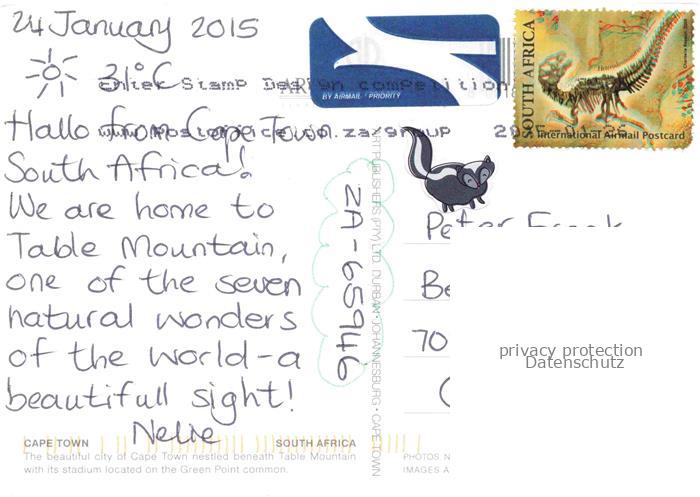 24 January 2015
31°C
Hallo from Cape Town
South Africa!
We are home to
Table Mountain,
one of the seven
natural wonders
of the world-a
beautifull sight!
Nelie
CAPE TOWN SOUTH AFRICA
The beautiful city of Cape Town nestled beneath Table Mountain
with its stadium located on the Green Point common.
enter Stamp Design competition
BY AIRMAIL / PRIORITY
SOUTH AFRICA
International Airmail Postcard
ZA-65946
ART PUBLISHERS (PTY) LTD, DURBAN · JOHANNESBURG · CAPE TOWN
Peter
70
PHOTOS
IMAGES
privacy protection
Datenschutz